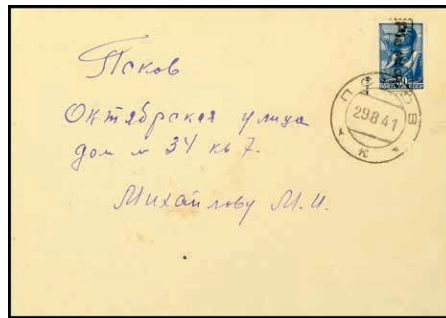 Псков
Октябрская улица
дом № 34 кв 7.
Михайлову М.И.
ПСКОВ
29 8 41